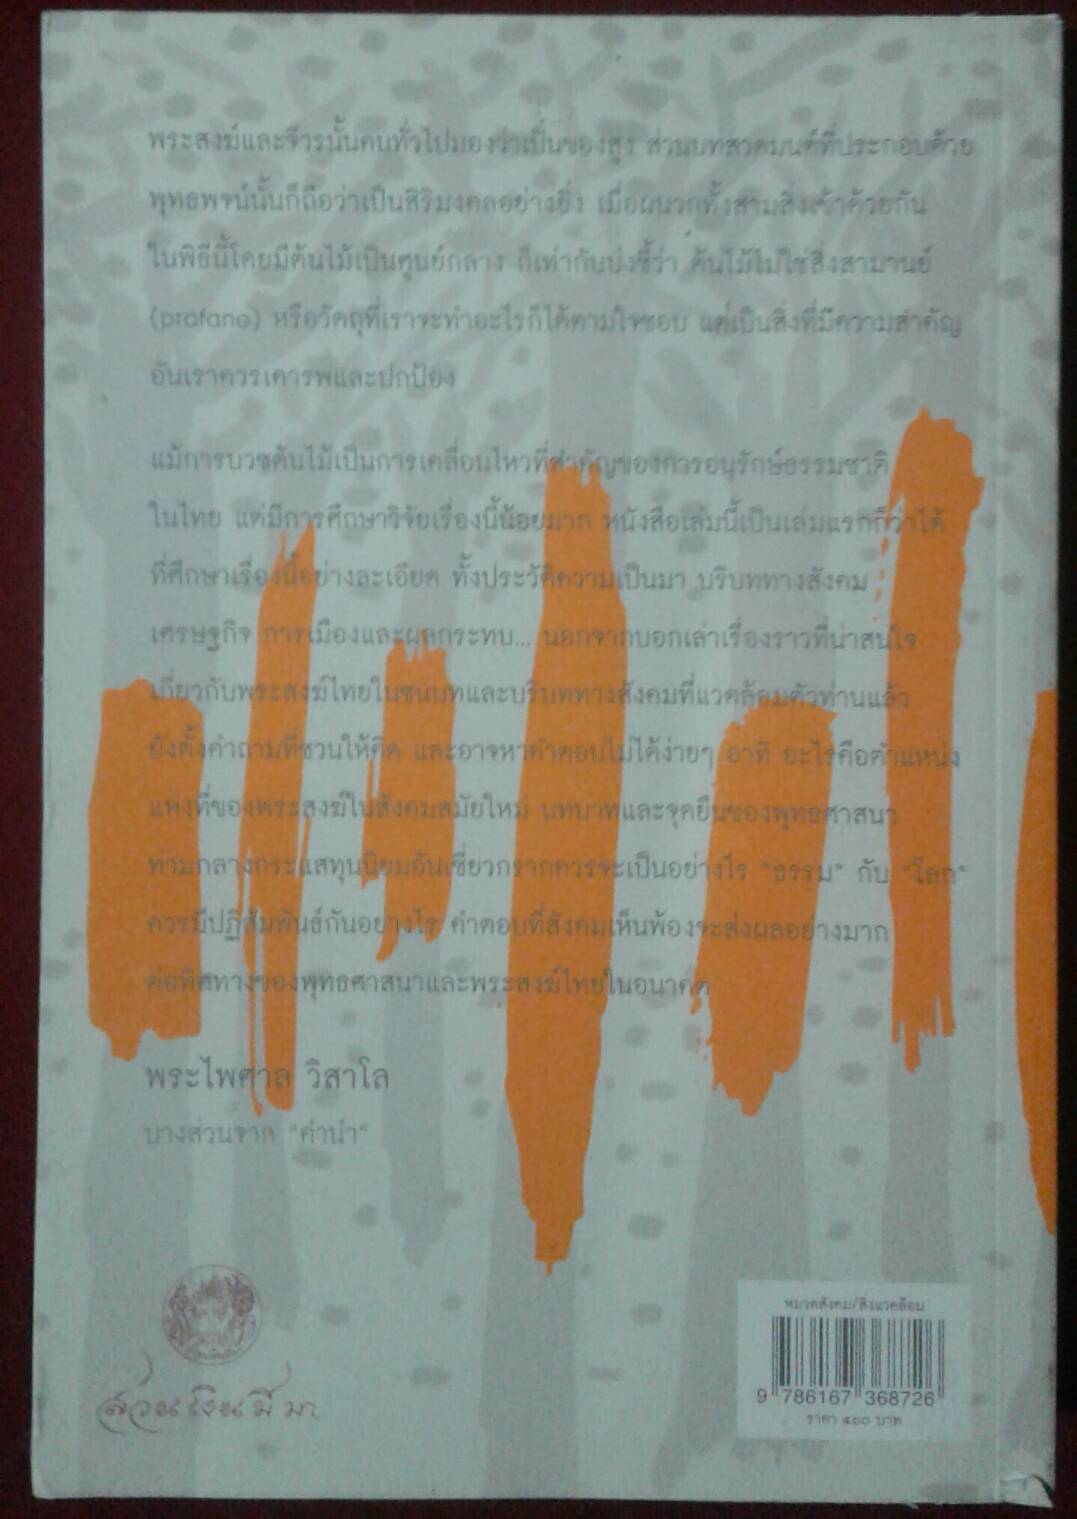 พระสงฆ์และจีวรนั้นคนทั่วไปมองว่าเป็นของสูง ส่วนบทสวดมนต์ที่ประกอบด้วย
พุทธพจน์นั้นก็ถือว่าเป็นสิริมงคลอย่างยิ่ง เมื่อผนวกทั้งสามสิ่งเข้าด้วยกัน
ในพิธีนี้โดยมีต้นไม้เป็นศูนย์กลาง ก็เท่ากับบ่งชี้ว่า ต้นไม้ไม่ใช่สิ่งสามานย์
(profane) หรือวัตถุที่เราจะทำอะไรก็ได้ตามใจชอบ แต่เป็นสิ่งที่มีความสำคัญ
อันเราควรเคารพและปกป้อง
แม้การบวชต้นไม้เป็นการเคลื่อนไหวที่สำคัญของการอนุรักษ์ธรรมชาติ
ในไทย แต่มีการศึกษาวิจัยเรื่องนี้น้อยมาก หนังสือเล่มนี้เป็นเล่มแรกก็ว่าได้
ที่ศึกษาเรื่องนี้อย่างละเอียด ทั้งประวัติความเป็นมา บริบททางสังคม
เศรษฐกิจ การเมืองและผลกระทบ... นอกจากบอกเล่าเรื่องราวที่น่าสนใจ
เกี่ยวกับพระสงฆ์ไทยในชนบทและบริบททางสังคมที่แวดล้อมตัวท่านแล้ว
ยังตั้งคำถามที่ชวนให้คิด และอาจหาคำตอบไม่ได้ง่ายๆ อาทิ อะไรคือตำแหน่ง
แห่งที่ของพระสงฆ์ในสังคมสมัยใหม่ บทบาทและจุดยืนของพุทธศาสนา
ท่ามกลางกระแสทุนนิยมอันเชี่ยวกรากควรจะเป็นอย่างไร "ธรรม" กับ "โลก"
ควรมีปฏิสัมพันธ์กันอย่างไร คำตอบที่สังคมเห็นพ้องจะส่งผลอย่างมาก
ต่อทิศทางของพุทธศาสนาและพระสงฆ์ไทยในอนาคต
พระไพศาล วิสาโล
บางส่วนจาก "คำนำ"
สวนเงินมีมา
หมวดสังคม/สิ่งแวดล้อม
9 786167 368726
ราคา ๔๐๐ บาท